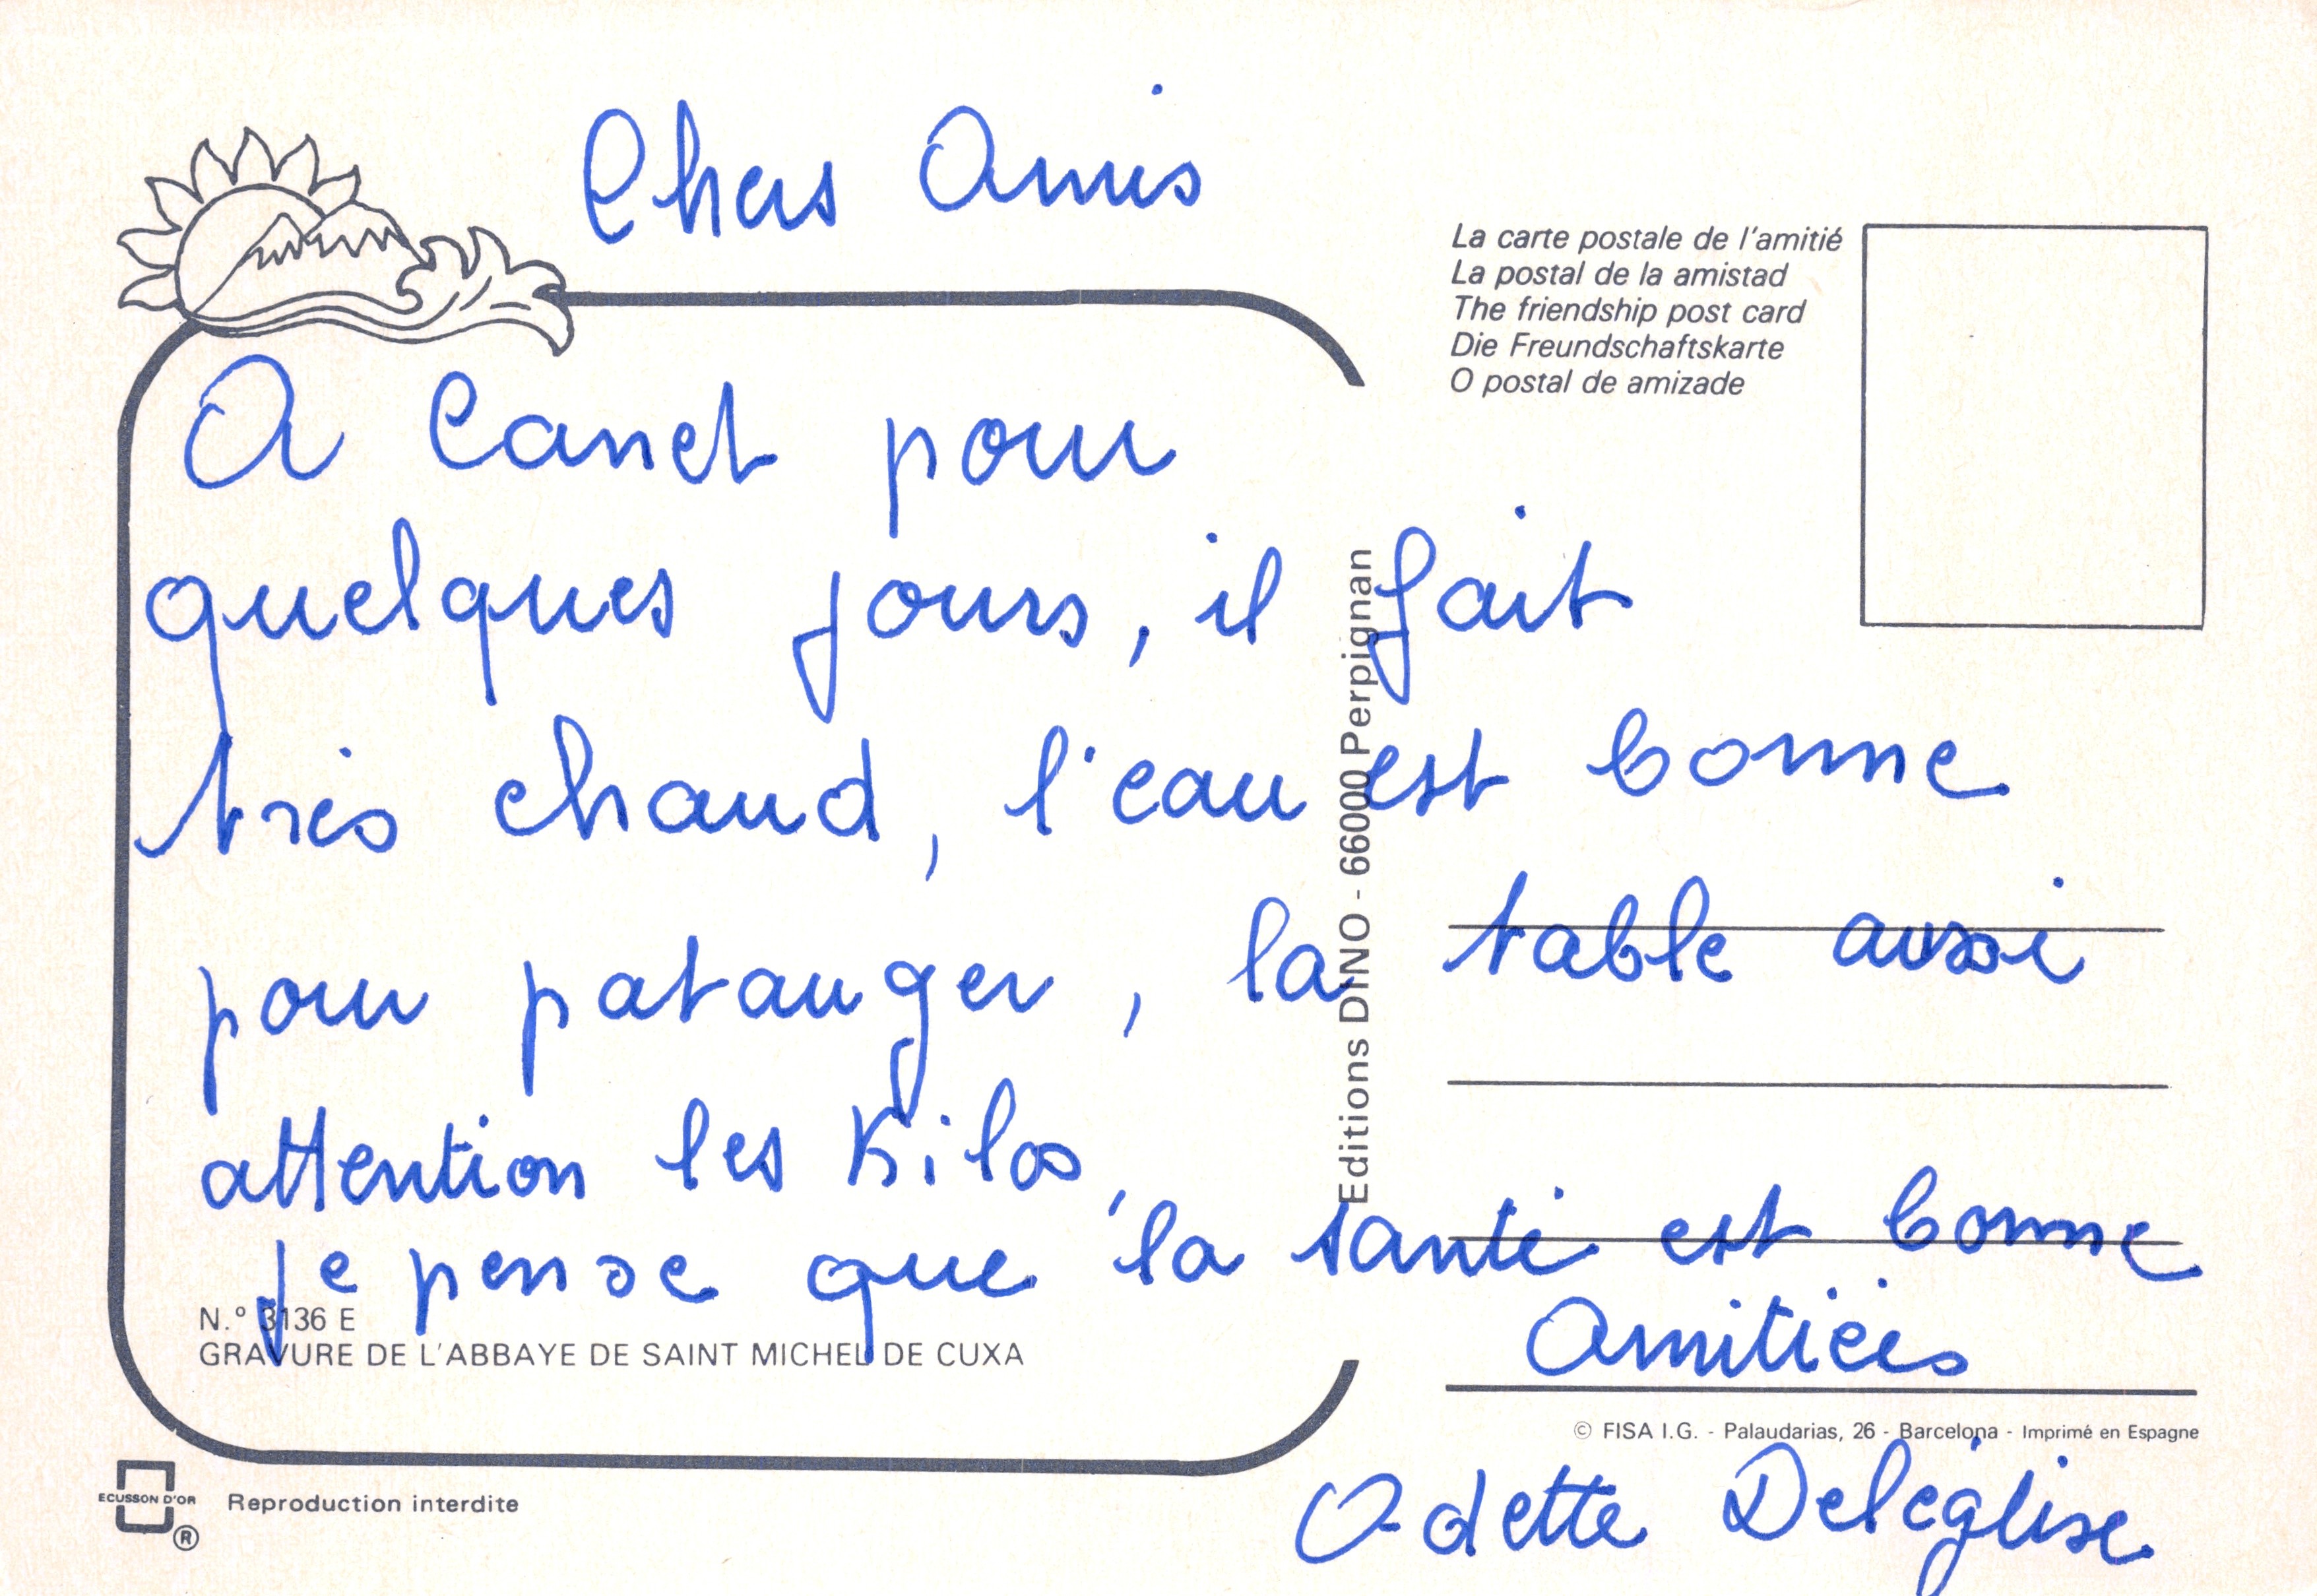 Chers Amis
La carte postale de l'amitié
La postal de la amistad
The friendship post card
Die Freundschaftskarte
O postal de amizade
A Canet pour
quelques jours, il fait
très chaud, l'eau est bonne
pour patauger, la table aussi
attention les Kilos,
je pense que la santé est bonne
Amitiées
Odette Deléglise
Editions DINO - 66000 Perpignan
N.º 3136 E
GRAVURE DE L'ABBAYE DE SAINT MICHEL DE CUXA
© FISA I.G. - Palaudarias, 26 - Barcelona - Imprimé en Espagne
ECUSSON D'OR
®
Reproduction interdite